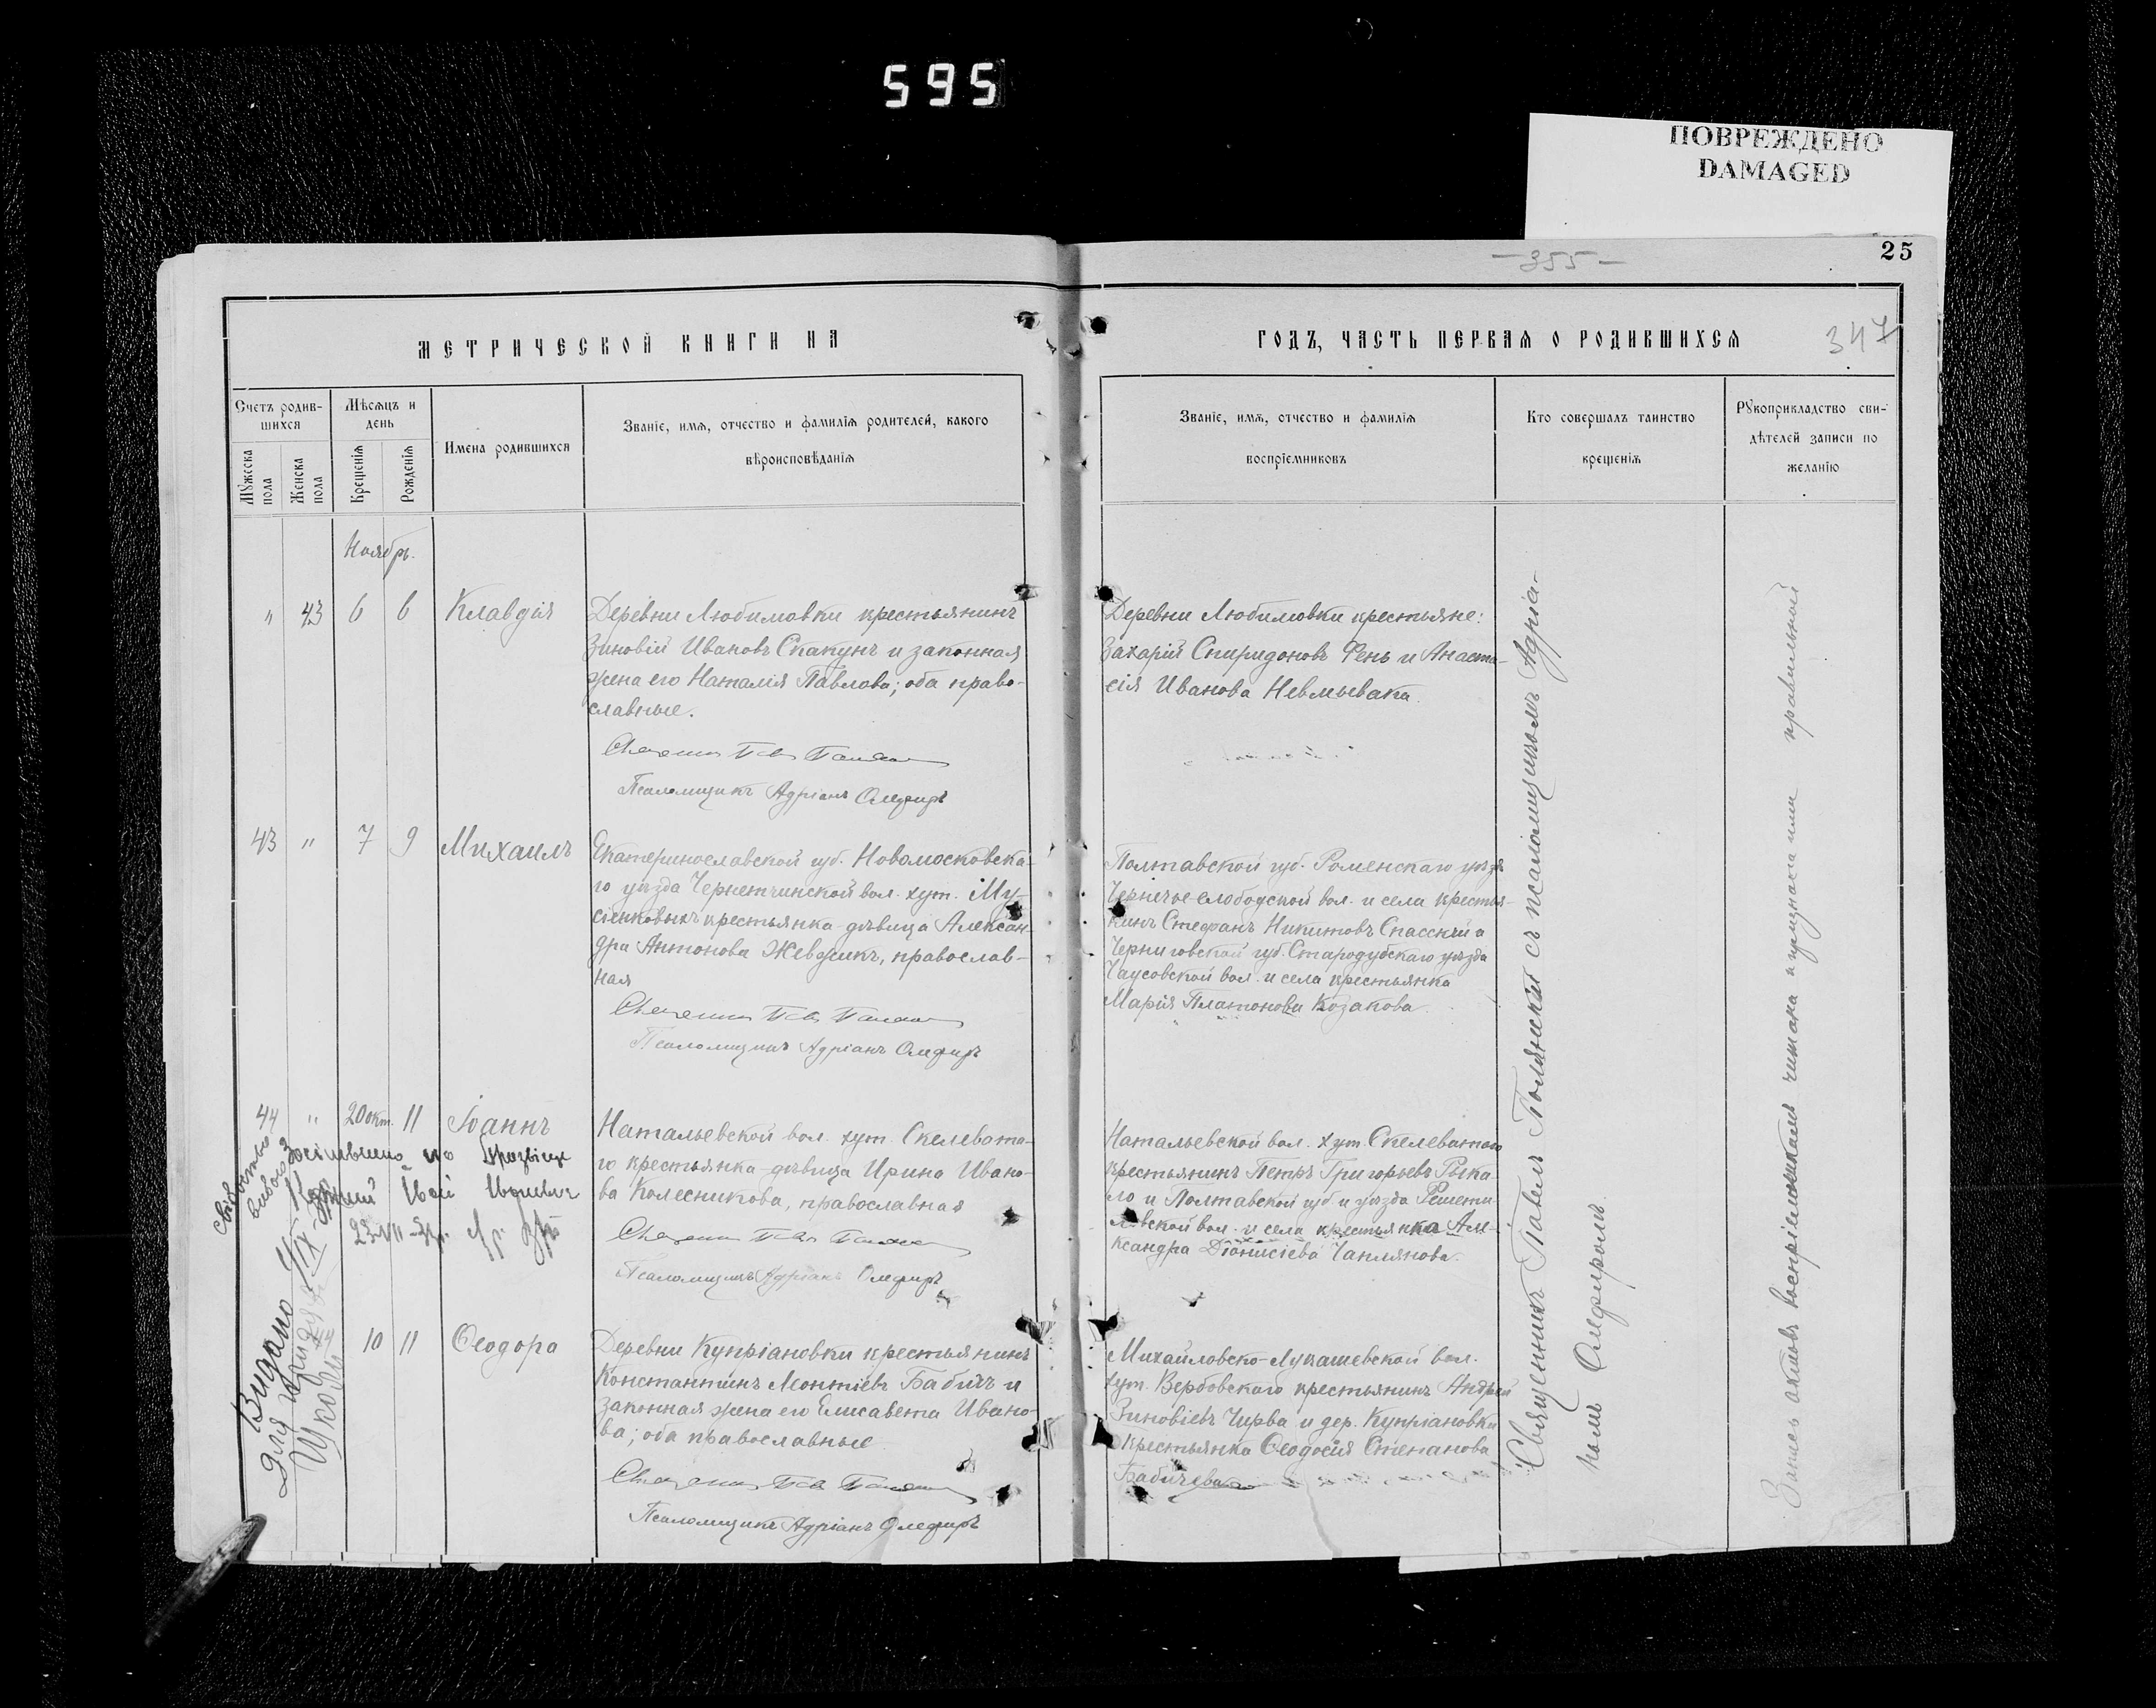 595
ПОВРЕЖДЕНО
DAMAGED
25
— 355 —
347
МЕТРИЧЕСКОЙ КНИГИ НА
ГОДЪ, ЧАСТЬ ПЕРВАЯ О РОДИВШИХСЯ
Счетъ родив-
шихся
Мужеска
пола
Женска
пола
Мѣсяцъ и
день
Крещенія
Рожденія
Имена родившихся
Званіе, имя, отчество и фамилія родителей, какого
вѣроисповѣданія
Званіе, имя, отчество и фамилія
воспріемниковъ
Кто совершалъ таинство
крещенія
Рукоприкладство сви-
дѣтелей записи по
желанію
Ноябрь.
" 43 6 6 Клавдія
Деревни Любимовки крестьянинъ
Зиновій Ивановъ Скакунъ и законная
жена его Наталія Павлова; оба право-
славные.
Псаломщикъ Адріанъ Олефиръ
Деревни Любимовки крестьяне:
Захарій Спиридоновъ Фень и Анаста-
сія Иванова Невмывака.
43 " 7 9 Михаилъ
Екатеринославской губ. Новомосковска-
го уѣзда Чернетчинской вол. хут. Му-
сіенковыхъ крестьянка-дѣвица Алексан-
дра Антонова Жевжикъ, православ-
ная
Псаломщикъ Адріанъ Олефиръ
Полтавской губ. Роменскаго уѣзда
слободской вол. и села крестья-
нинъ Стефанъ Никитовъ Спасскій и
Черниговской губ. Стародубскаго уѣзда
Чаусовской вол. и села крестьянка
Марія Платонова Козакова.
44 " 20 окт. 11 Іоаннъ
Натальевской вол. хут. Скелевата-
го крестьянка-дѣвица Ирина Ивано-
ва Колесникова, православная
Псаломщикъ Адріанъ Олефиръ
Натальевской вол. хут. Скелеватаго
крестьянинъ Петръ Григорьевъ Рыка-
ло и Полтавской губ. и уѣзда Решети-
ловской вол. и села крестьянка Але-
ксандра Діонисіева Чаплянова.
Видано
для
10 11 Ѳеодора
Деревни Купріановки крестьянинъ
Константинъ Леонтіевъ Бабичъ и
законная жена его Елисавета Ивано-
ва; оба православные
Псаломщикъ Адріанъ Олефиръ
Михайловско-Лукашевской вол.
хут. Вербовскаго крестьянинъ Андрей
Зиновіевъ Чирва и дер. Купріановки
крестьянка Ѳеодосія Степанова
Бабичева
Священникъ Павелъ съ псаломщикомъ Адріа-
номъ Олефиромъ.